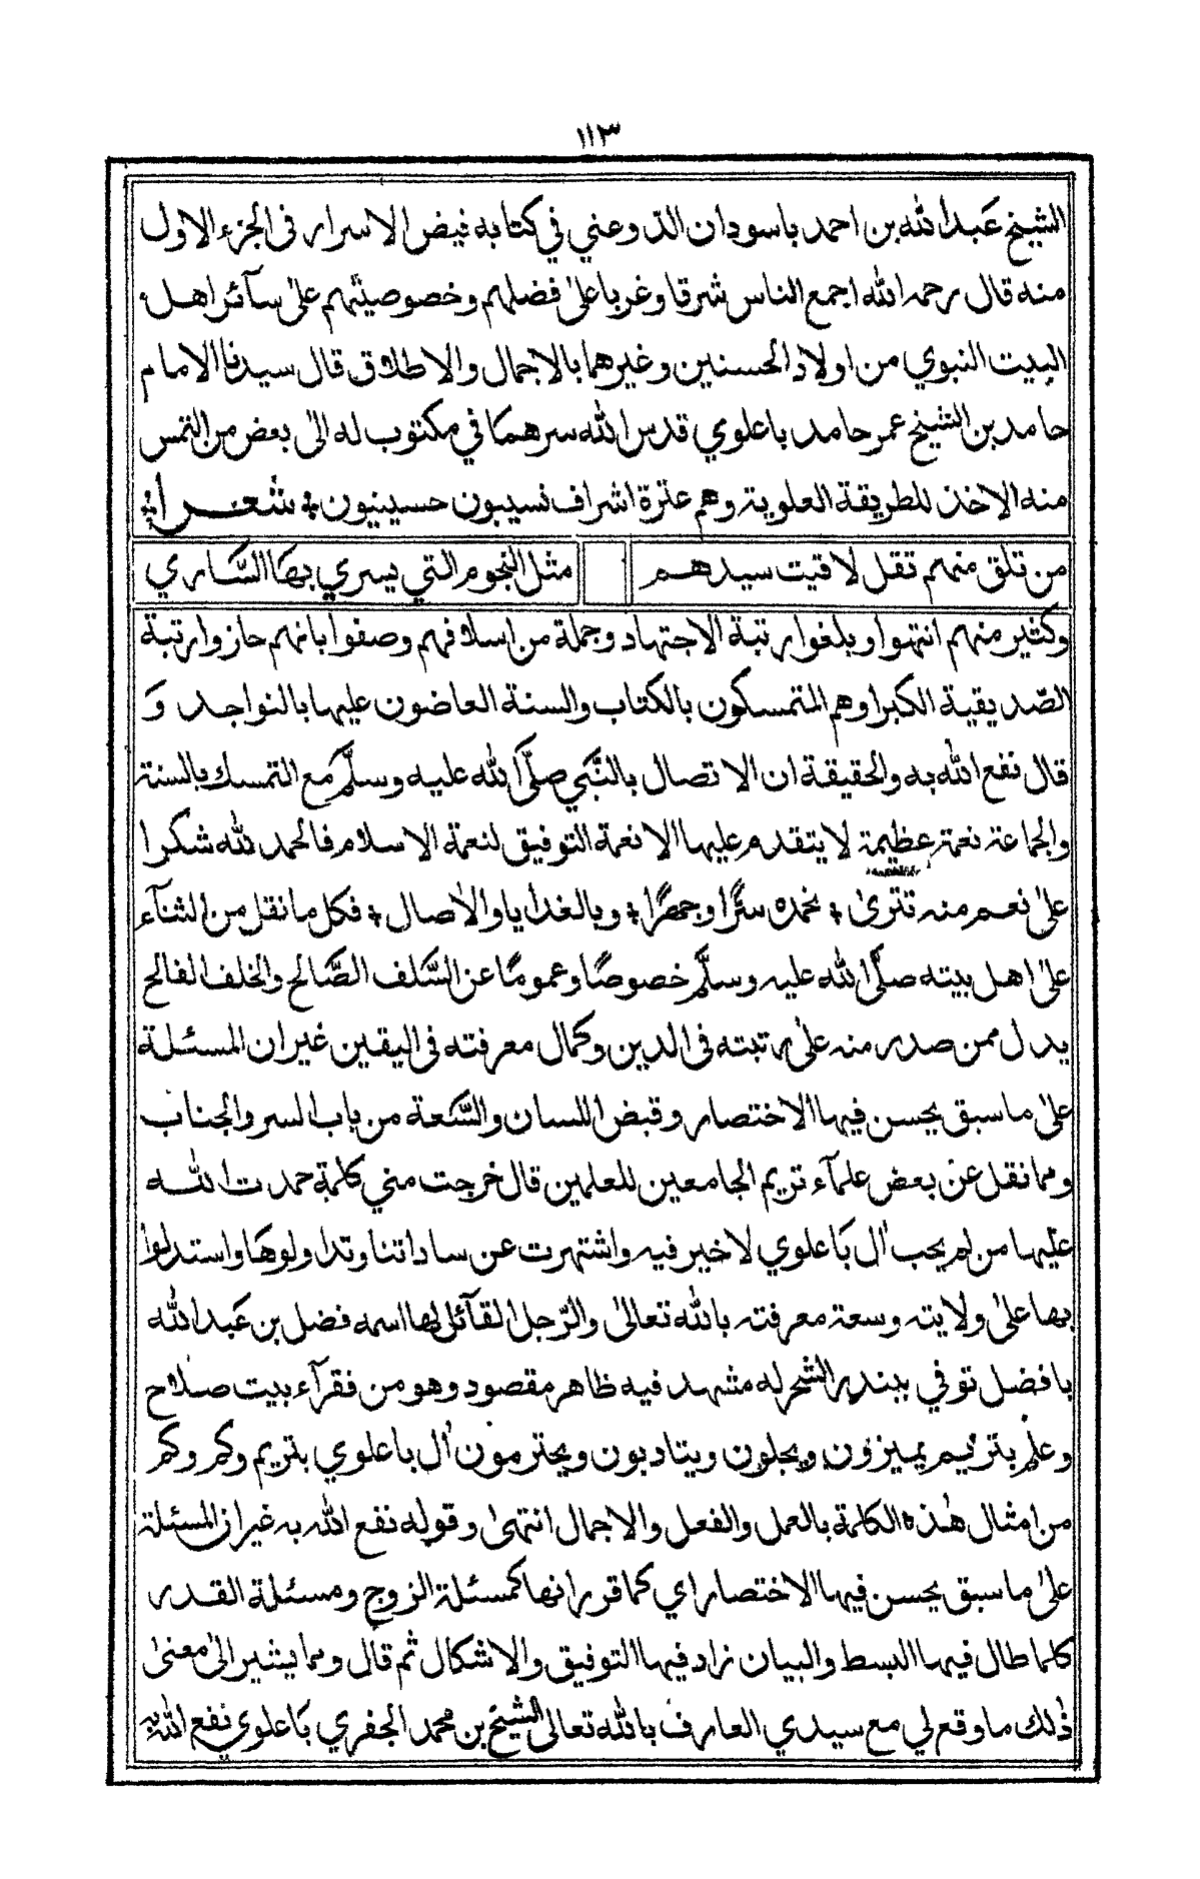 ١١٣
الشيخ عبد الله بن احمد باسودان الدوعني في كتابه فيض الاسرار فى الجزء الاول
منه قال رحمه الله اجمع الناس شرقا وغربا على فضلهم وخصوصيتهم على سآئر اهل
البيت النبوي من اولاد الحسنين وغيرهما بالاجمال والاطلاق قال سيدنا الامام
حامد بن الشيخ عمر حامد باعلوي قدس الله سرهما في مكتوب له الى بعض من التمس
منه الاخذ للطريقة العلوية وهم عترة اشراف نسيبون حسينيون شعرا
من تلق منهم تقل لاقيت سيدهم مثل النجوم التي يسري بها السّاري
وكثير منهم انتهوا وبلغوا رتبة الاجتهاد وجملة من اسلافهم وصفوا بانهم حازوا رتبة
الصّديقية الكبرا وهم المتمسكون بالكتاب والسنة العاضون عليها بالنواجد و
قال نفع الله به والحقيقة ان الاتصال بالنّبي صلّى الله عليه وسلّم مع التمسك بالسنة
والجماعة نعمة عظيمة لا يتقدم عليها الا نعمة التوفيق لنعمة الاسلام فالحمد لله شكرا
على نعم منه تترى نحمده سرًّا وجهرًا وبالغدايا والاصال فكل ما نقل من الثنآء
على اهل بيته صلّى الله عليه وسلّم خصوصًا وعمومًا عن السّلف الصّالح والخلف الفالح
يدل ممن صدر منه على رتبته فى الدين وكمال معرفته فى اليقين غير ان المسئلة
على ما سبق يحسن فيها الاختصار وقبض اللسان والسّعة من باب السر والجناب
ومما نقل عن بعض علمآء تريم الجامعين للعلمين قال خرجت مني كلمة حمدت الله
عليها من لم يحب ال باعلوي لا خير فيه واشتهرت عن ساداتنا وتداولوها واستدلوا
بها على ولايته وسعة معرفته بالله تعالى والرّجل القآئل لها اسمه فضل بن عبد الله
بافضل توفي ببندر الشحر له مشهد فيه ظاهر مقصود وهو من فقرآء بيت صلاح
وعلم بتريم يميزون ويجلون ويتادبون ويحترمون ال باعلوي بتريم وكم وكم
من امثال هذه الكلمة بالعمل والفعل والاجمال انتهى وقوله نفع الله به غير ان المسئلة
على ما سبق يحسن فيها الاختصار اي كما قرر انها كمسئلة الزوج ومسئلة القدر
كلما طال فيها البسط والبيان زاد فيها التوفيق والاشكال ثم قال ومما يشير الى معنى
ذلك ما وقع لي مع سيدي العارف بالله تعالى الشيخ بن محمد الجفري باعلوي نفع الله به